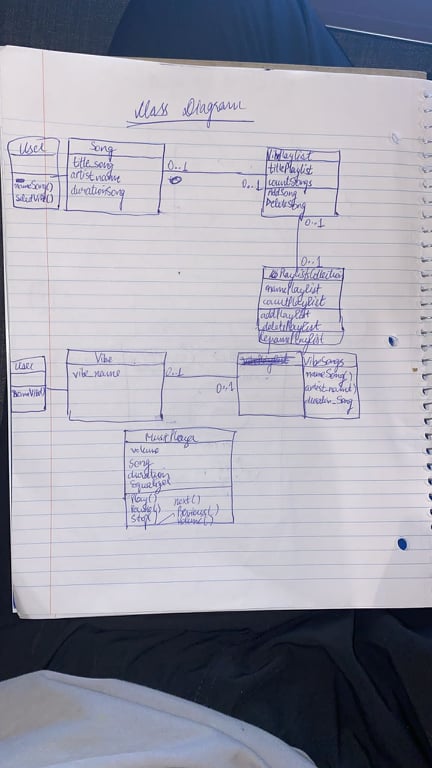 Class Diagram
User
nameSong()
selectVibe()
Song
title_song
artist_name
durationSong
0..1
0..1
VibePlaylist
titlePlaylist
countSongs
AddSong
DeleteSong
0..1
0..1
PlaylistCollection
namePlaylist
countPlaylist
addPlaylist
deletePlaylist
RenamePlaylist
User
nameVibe()
Vibe
vibe_name
0..1
0..1
VibeSongs
nameSong()
artist_name()
duration_Song
Music Player
volume
Song
duration
Equalizer
Play()
Pause()
Stop()
next()
Previous()
volume()